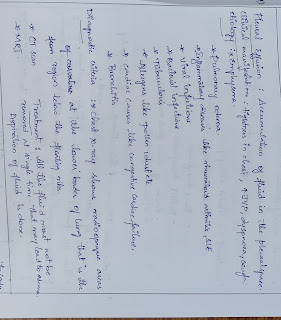 Pleural Effusion : Accumulation of fluid in the pleural space.
Clinical manifestations : Tightness in chest, ↑ JVP, dyspnoea, cough.
etiology is emphysema.
* Pulmonary edema
* Inflammatory diseases like rheumatoid arthritis, SLE
* Viral infections
* Bacterial infections
* Tuberculosis
* Allergens like pollen, dust etc
* Cardiac causes like congestive cardiac failure.
* Bronchitis
Diagnostic criteria : * Chest x-ray shows radioopaque areas
of curvature at the lower border of lung that is the
from region below the floating ribs
* CT scan
* MRI
Treatment : All the fluid must not be
removed at single time that may lead to
Aspiration of fluid is done.